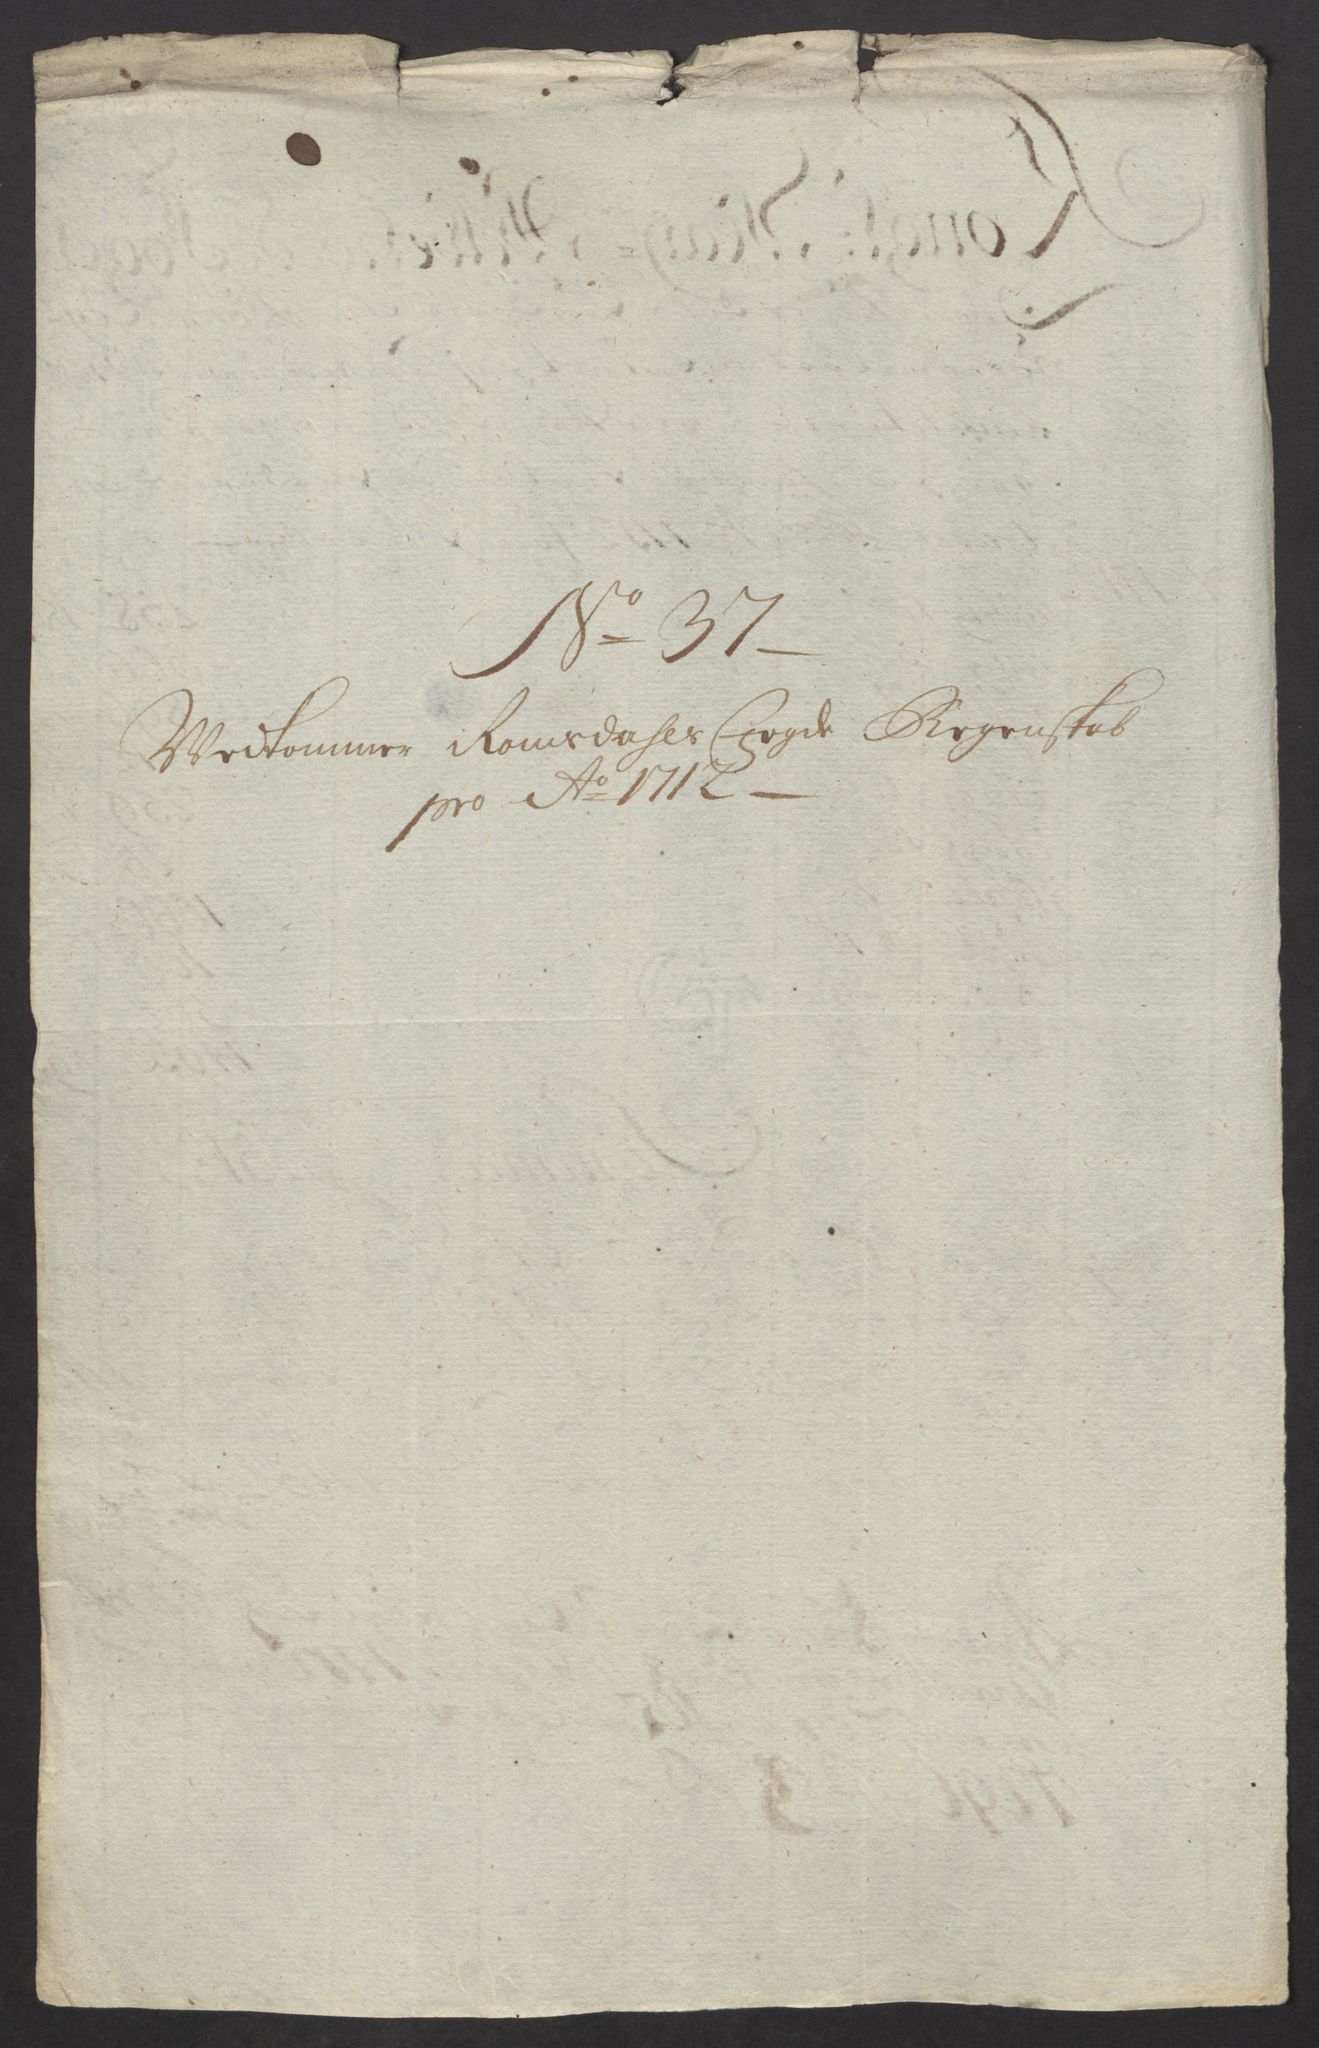 No 37
Vedkommer Romsdahls Fogde Regenskab
pro Ao 1712